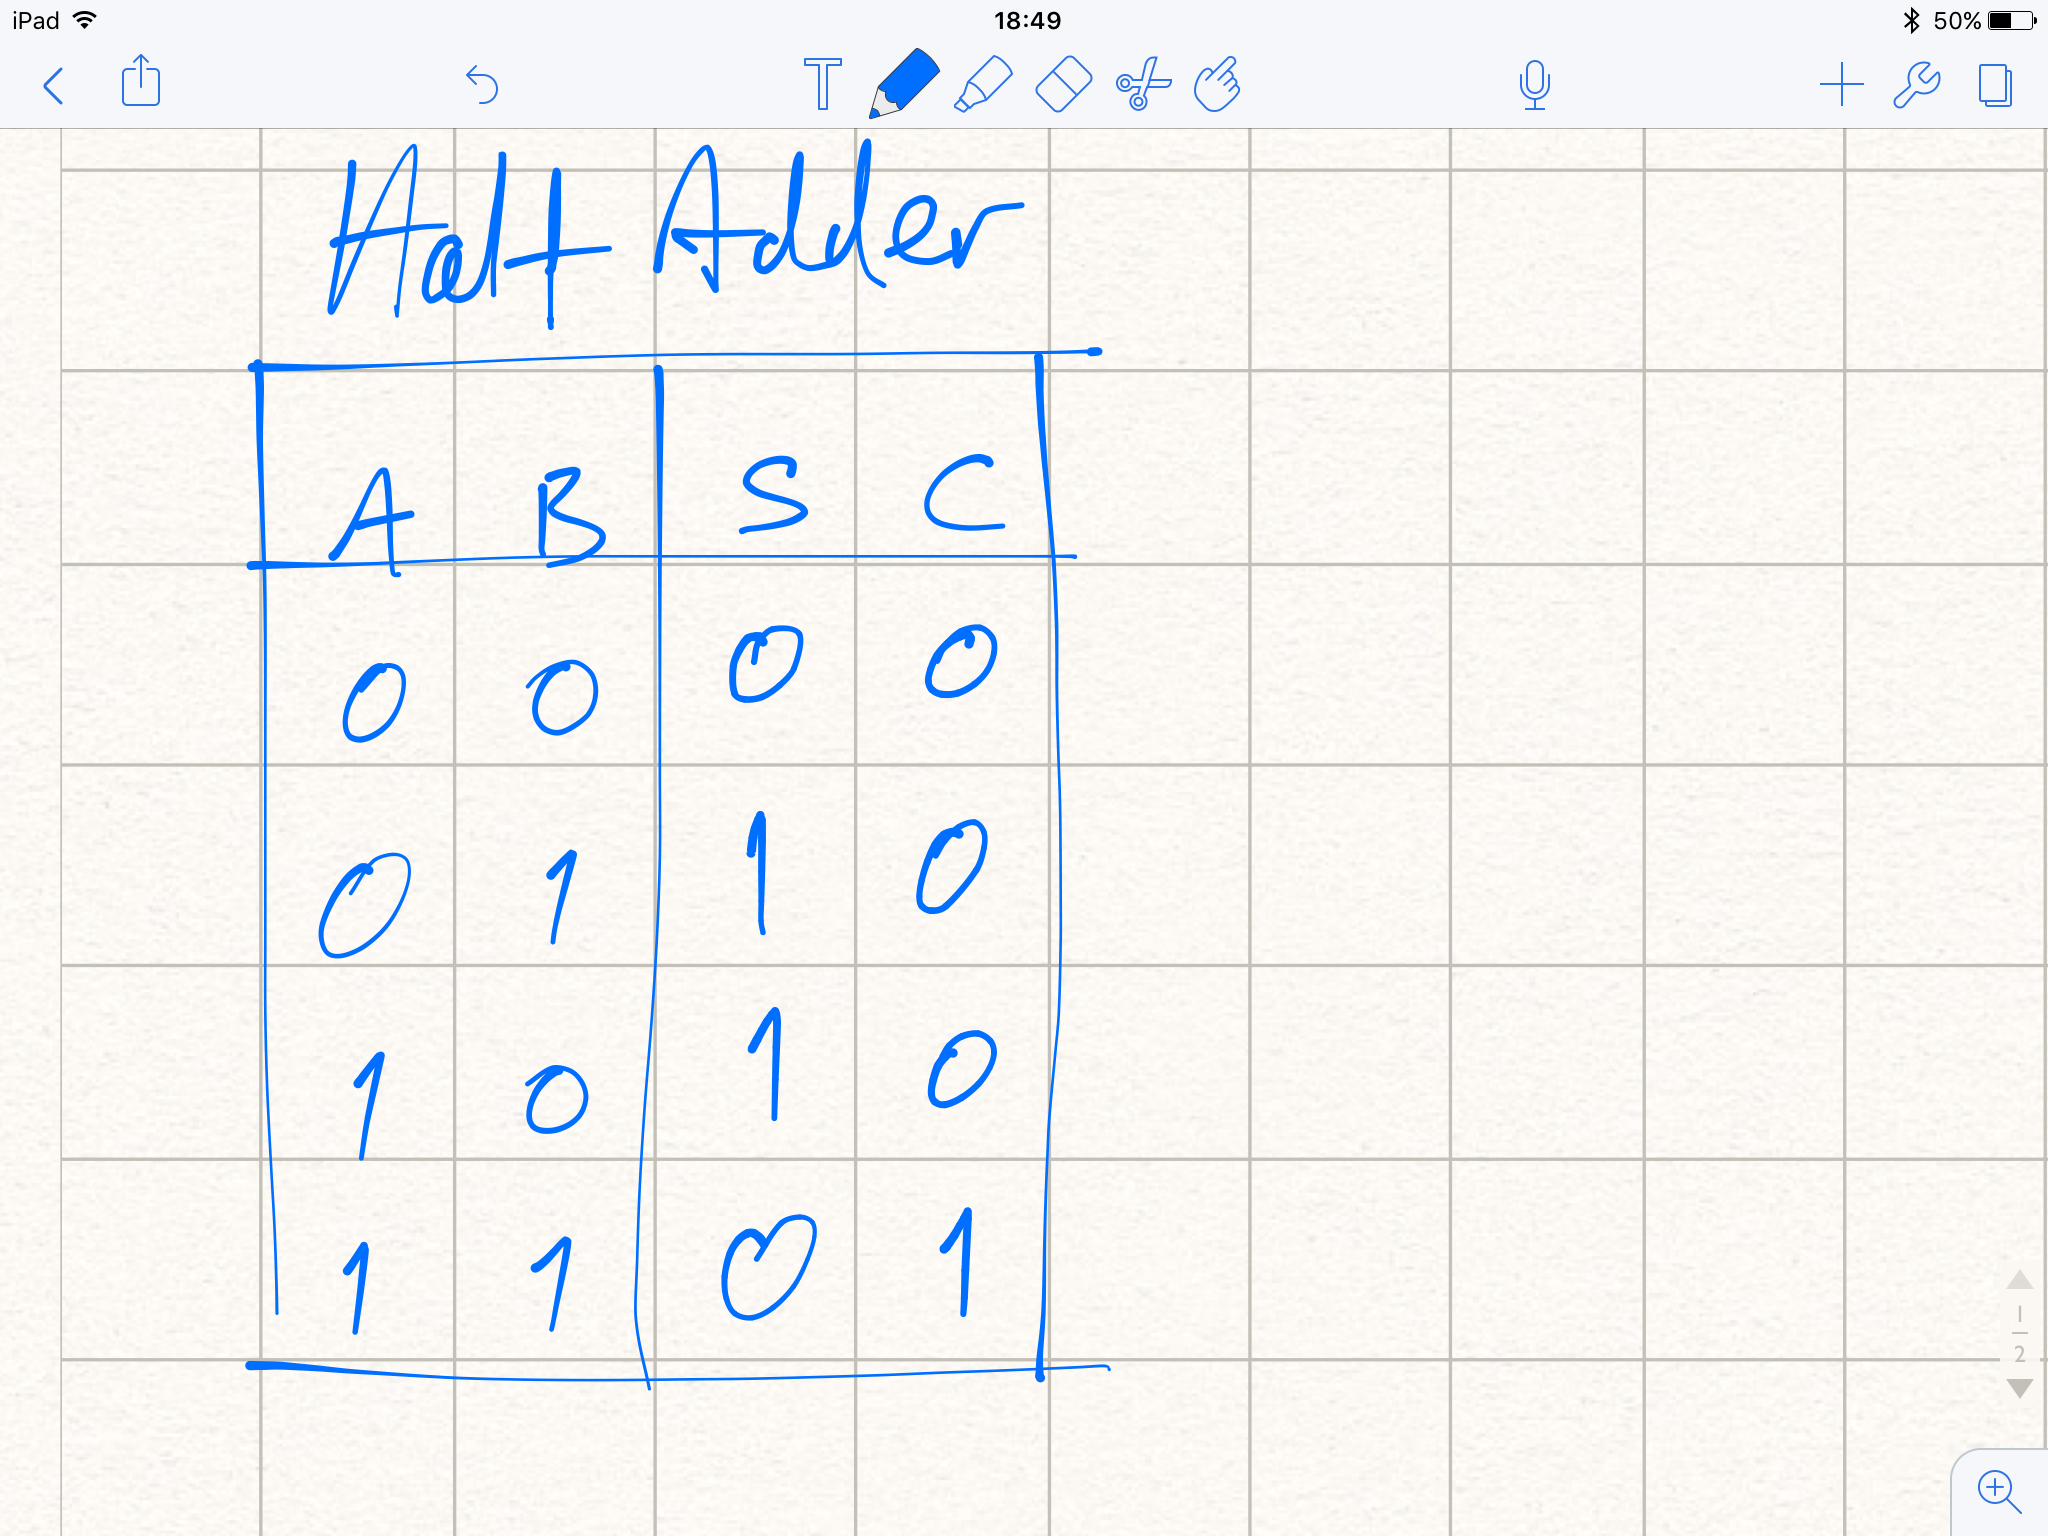 iPad 18:49 50%
T
Half Adder
A B S C
0 0 0 0
0 1 1 0
1 0 1 0
1 1 0 1
1
2